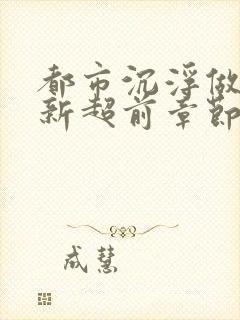 都市沉浮做
新超前章節
成慧